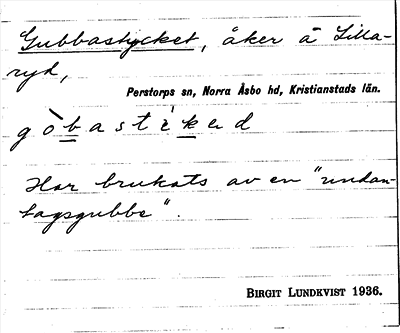 Gubbastycket, åker å Lilla-
ryd,
Perstorps sn, Norra Åsbo hd, Kristianstads län.
gòbastíkəd
Har brukats av en "undan-
tagsgubbe".
BIRGIT LUNDKVIST 1936.